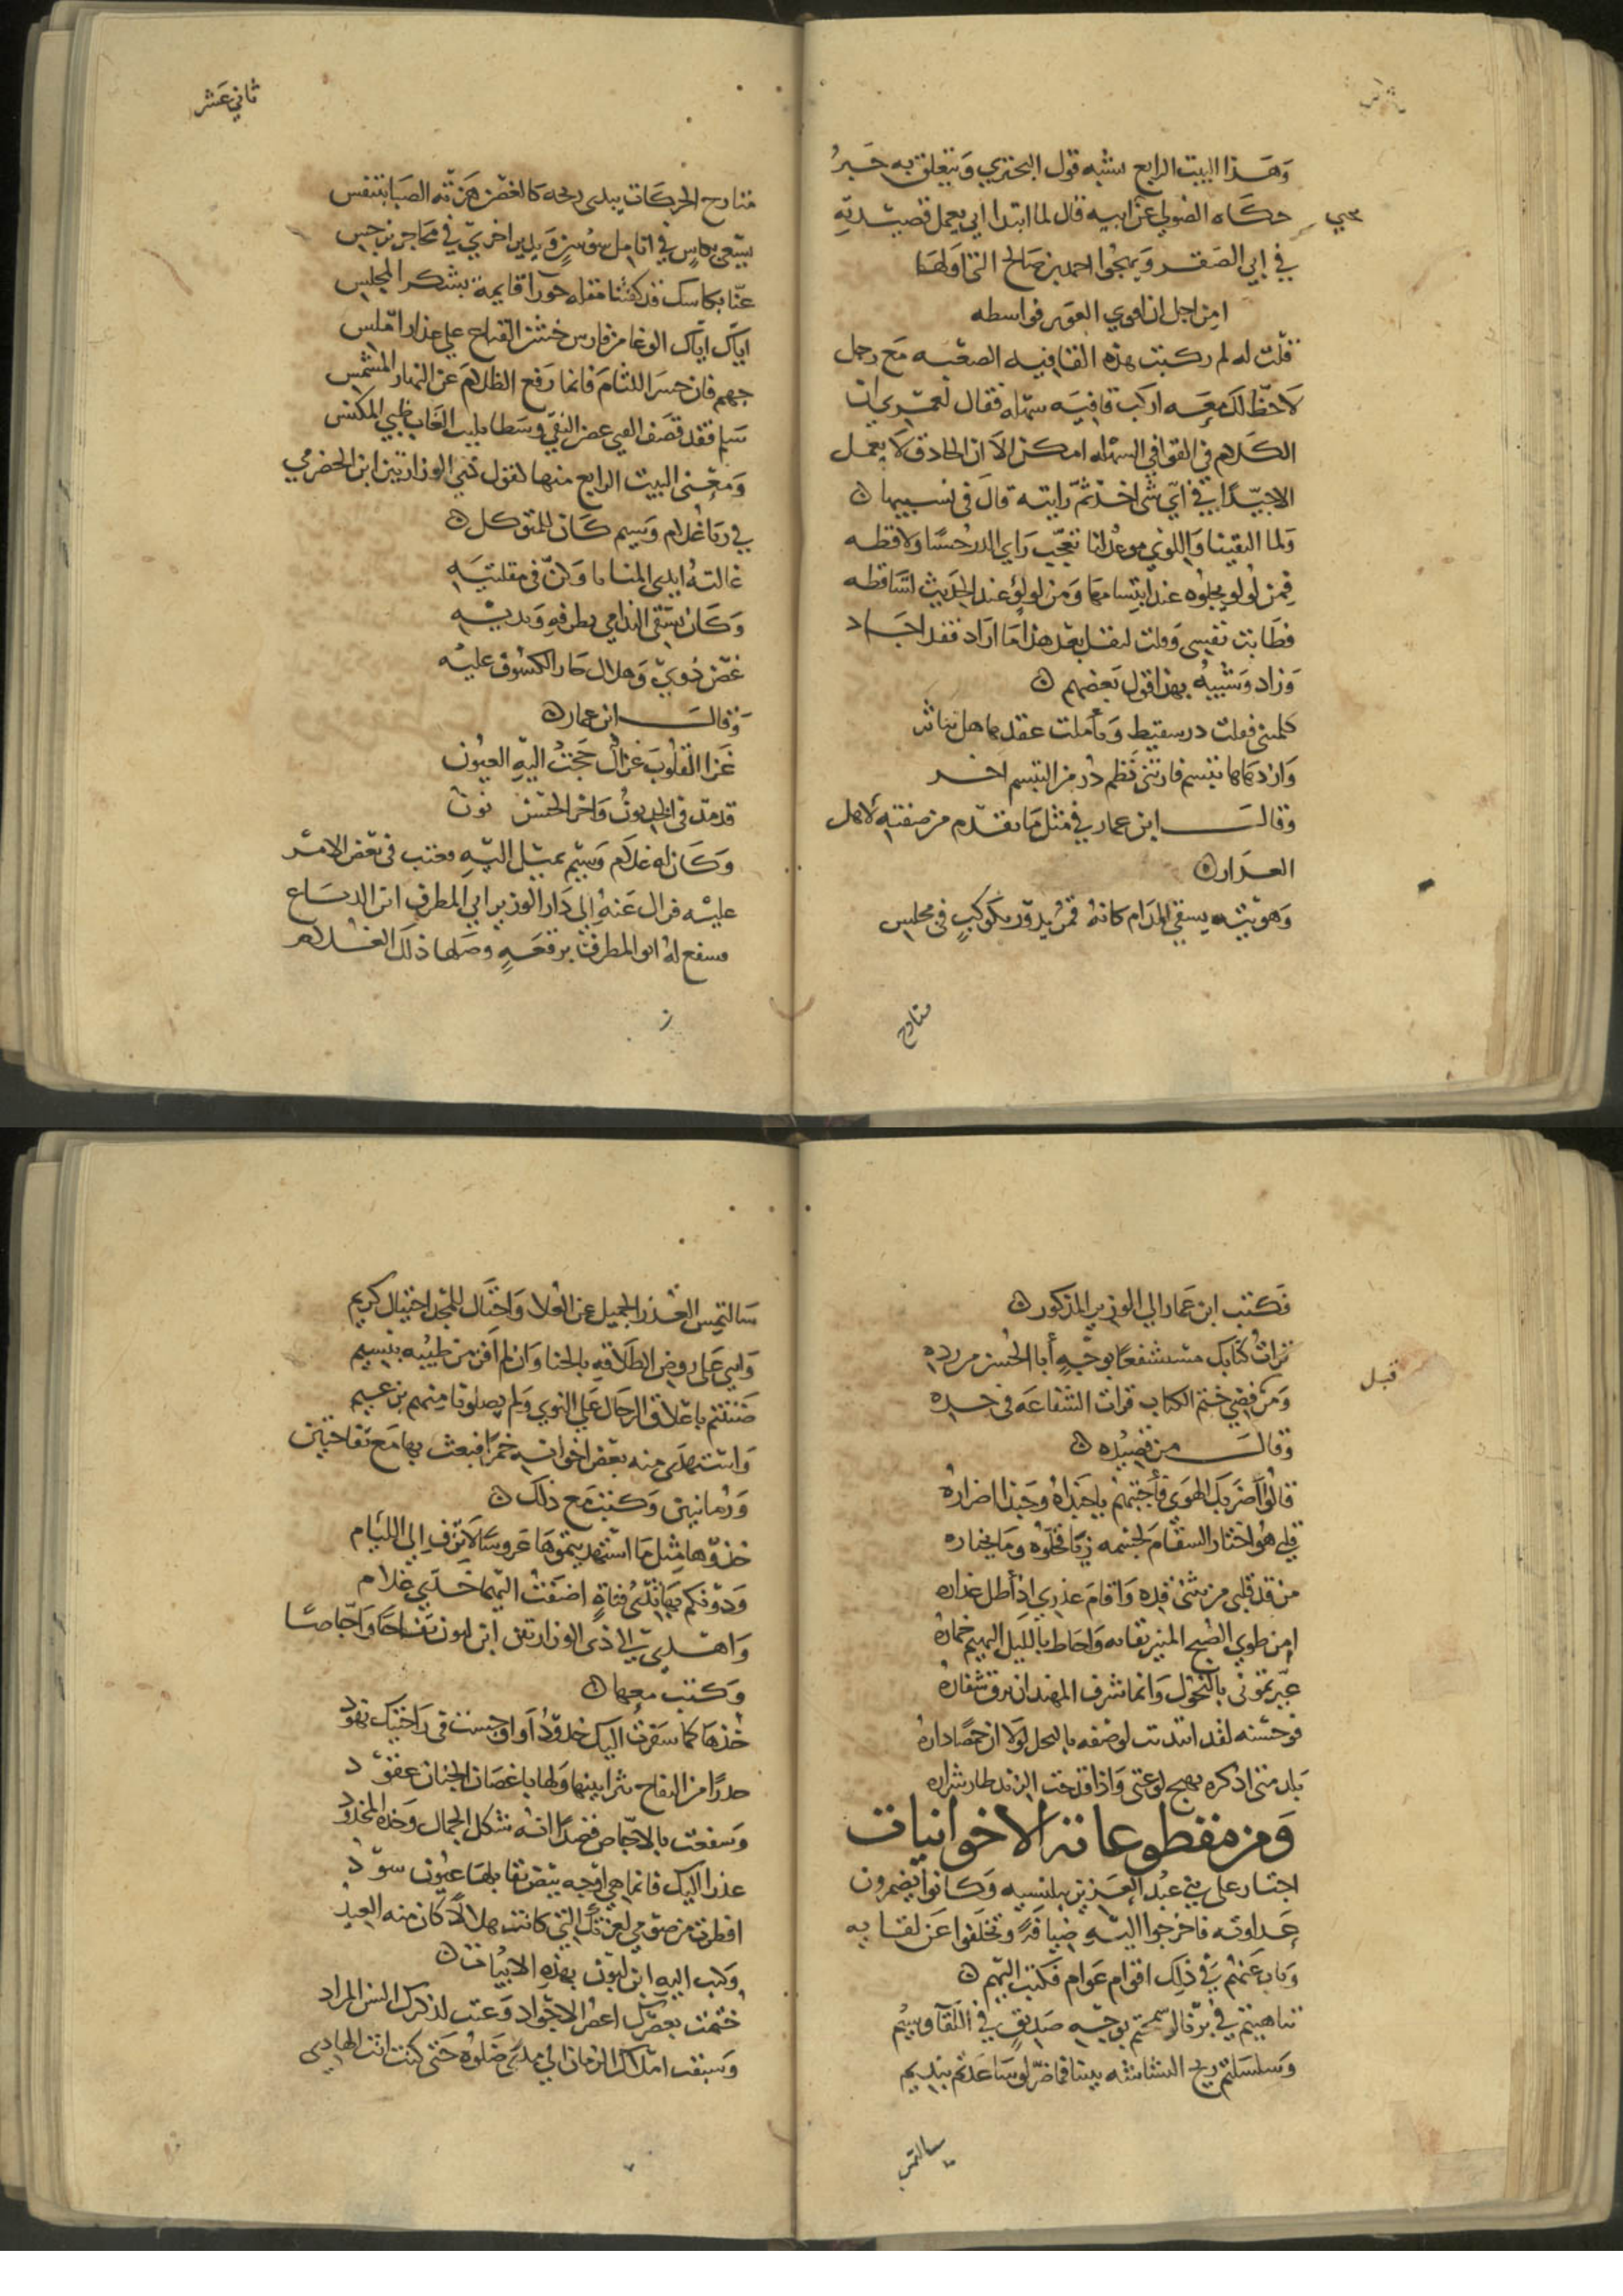 وهذا البيت الرابع يشبه قول البحتري ويتعلق به خبر
حكاه الصولي عن ابيه قال لما ابتدا ابي يعمل قصيدته
في ابي الصقر ويهجوا احمد بن صالح التي اولها
امن اجل ان اقوى الغوير فواسطه
قلت له لم ركبت هذه القافيه الصعبه مع رجل
لا حظ لك معه اركب قافيه سهله فقال لعمري ان
الكلام في القوافي السهله امكن الا ان الحاذق لا يعمل
الا جيدا في اي شي اخذ ثم رايته قال في نسيبها
ولما التقينا واللوى موعد لنا تعجب راي الدر حسنا ولاقطه
فمن لولو يجلوه عند ابتسامها ومن لولؤ عند الحديث تساقطه
فطابت نفسي وقلت لنفسي بعد هذا ما اراد فقد اجاد
وزاد وشبيه بهذا قول بعضهم
كلمتني فقلت در سقيط وتاملت عقدها هل تناثر
وازدهاها تبسم فارتني نظم در من التبسم اخر
وقال ابن عمار في مثل ما تقدم من صفته لاهل
العذار
وهويته يسقي المدام كانه قمر يدور بكوكب في مجلس
متارح
ثاني عشر
متارح الحركات يبدي ريحه كالغصن هزته الصبا بتنفس
يسعى بكاس في انامل سوسن ويدير اخرى في محاجر نرجس
عنا بكاسك قد كفتنا مقله حورا قايمة بشكر المجلس
اياك اياك الوغا من فارس خشن القناع على عذار املس
جهم فان حسر اللثام فانما رفع الظلام عن النهار المشمس
ومعنى البيت الرابع منها كقول ذي الوزارتين ابن الحضرمي
في رثا غلام وسيم كان للمتوكل
غالته ايدي المنايا وكن في مقلتيه
وكان يسقي الندامى بطرفه وبديه
غصن ذوي وهلال جار الكسوف عليه
وقال ابن عمار
غزا القلوب غزال حجت اليه العيون
قد مد في الخد نون واخر الحسن نون
وكان له غلام وسيم يميل اليه فعتب في بعض الامر
عليه فزال عنه الى دار الوزير ابي المطرف ابن الدباغ
فشفع له ابو المطرف برقعه وصلها ذلك الغلام
قبل
فكتب ابن عمار الى الوزير المذكور
قرات كتابك مستشفعا بوجه أبا الحسن من رده
ومن قبل فضي ختم الكتاب قرات الشفاعة في خده
وقال من قصيده
قالوا اضر بك الهوى فأجبتهم يا حبذاه وحبذا اضراره
قلبي هو اختار السقام لجسمه زيا فخلوه وما يختاره
من قد قلبي من تثنى قده واقام عذري اذ أطل عذاره
امن طوى الصبح المنير نقابه واحاط بالليل البهيم خماره
عيرتموني بالنحول وانما شرف المهند ان ترق شفاره
بلد متى اذكره يهيج لوعتي واذا قدحت الزند طار شراره
ومن مقطوعاته الاخوانيات
اجتاز على بني عبد العزيز ببلنسيه وكانوا يضمرون
عداوته فاخرجوا اليه ضيافة وتخلفوا عن لقايه
وناب عنهم في ذلك اقوام عوام فكتب اليهم
تناهيتم في برنا لو سمحتم بوجه صديق في اللقآ وسيم
وسلسلتم ريح البشاشه بيننا فما ضر لو ساعدتم بنديم
سالتمس
سالتمس العذر الجميل عن العلا واحتال للمجد احتيال كريم
واثني على روض الطلاقه بالجنا وان لم افز من طيبه بنسيم
ضننتم باعلاق الرجال على النوى ولم يصلونا منهم بزعيم
واستهدى منه بعض اخوانه خمرا فبعث بها مع تفاحتين
ورمانتين وكتب مع ذلك
خذوها مثل ما استهديتموها عروسا لا تزف الى اللئام
ودونكم بها ثديي فتاة اضفت اليهما خدي غلام
واهدى الى ذي الوزارتين ابن لبون تفاحا واجاصا
وكتب معها
خذها كما سفرت اليك خدود أو اوجست في راحتيك نهود
دررا من التفاح تنثر بيننا ولها باغصان الجنان عقود
وشفعت بالاجاص قصدا انه شكل الجمال وحده المحدود
عذرا اليك فانما هي اوجه بيض تقابلها عيون سود
افطرت من صومي لعزتك التي كانت هلالا كان منه العيد
وكتب اليه ابن لبون بهذه الابيات